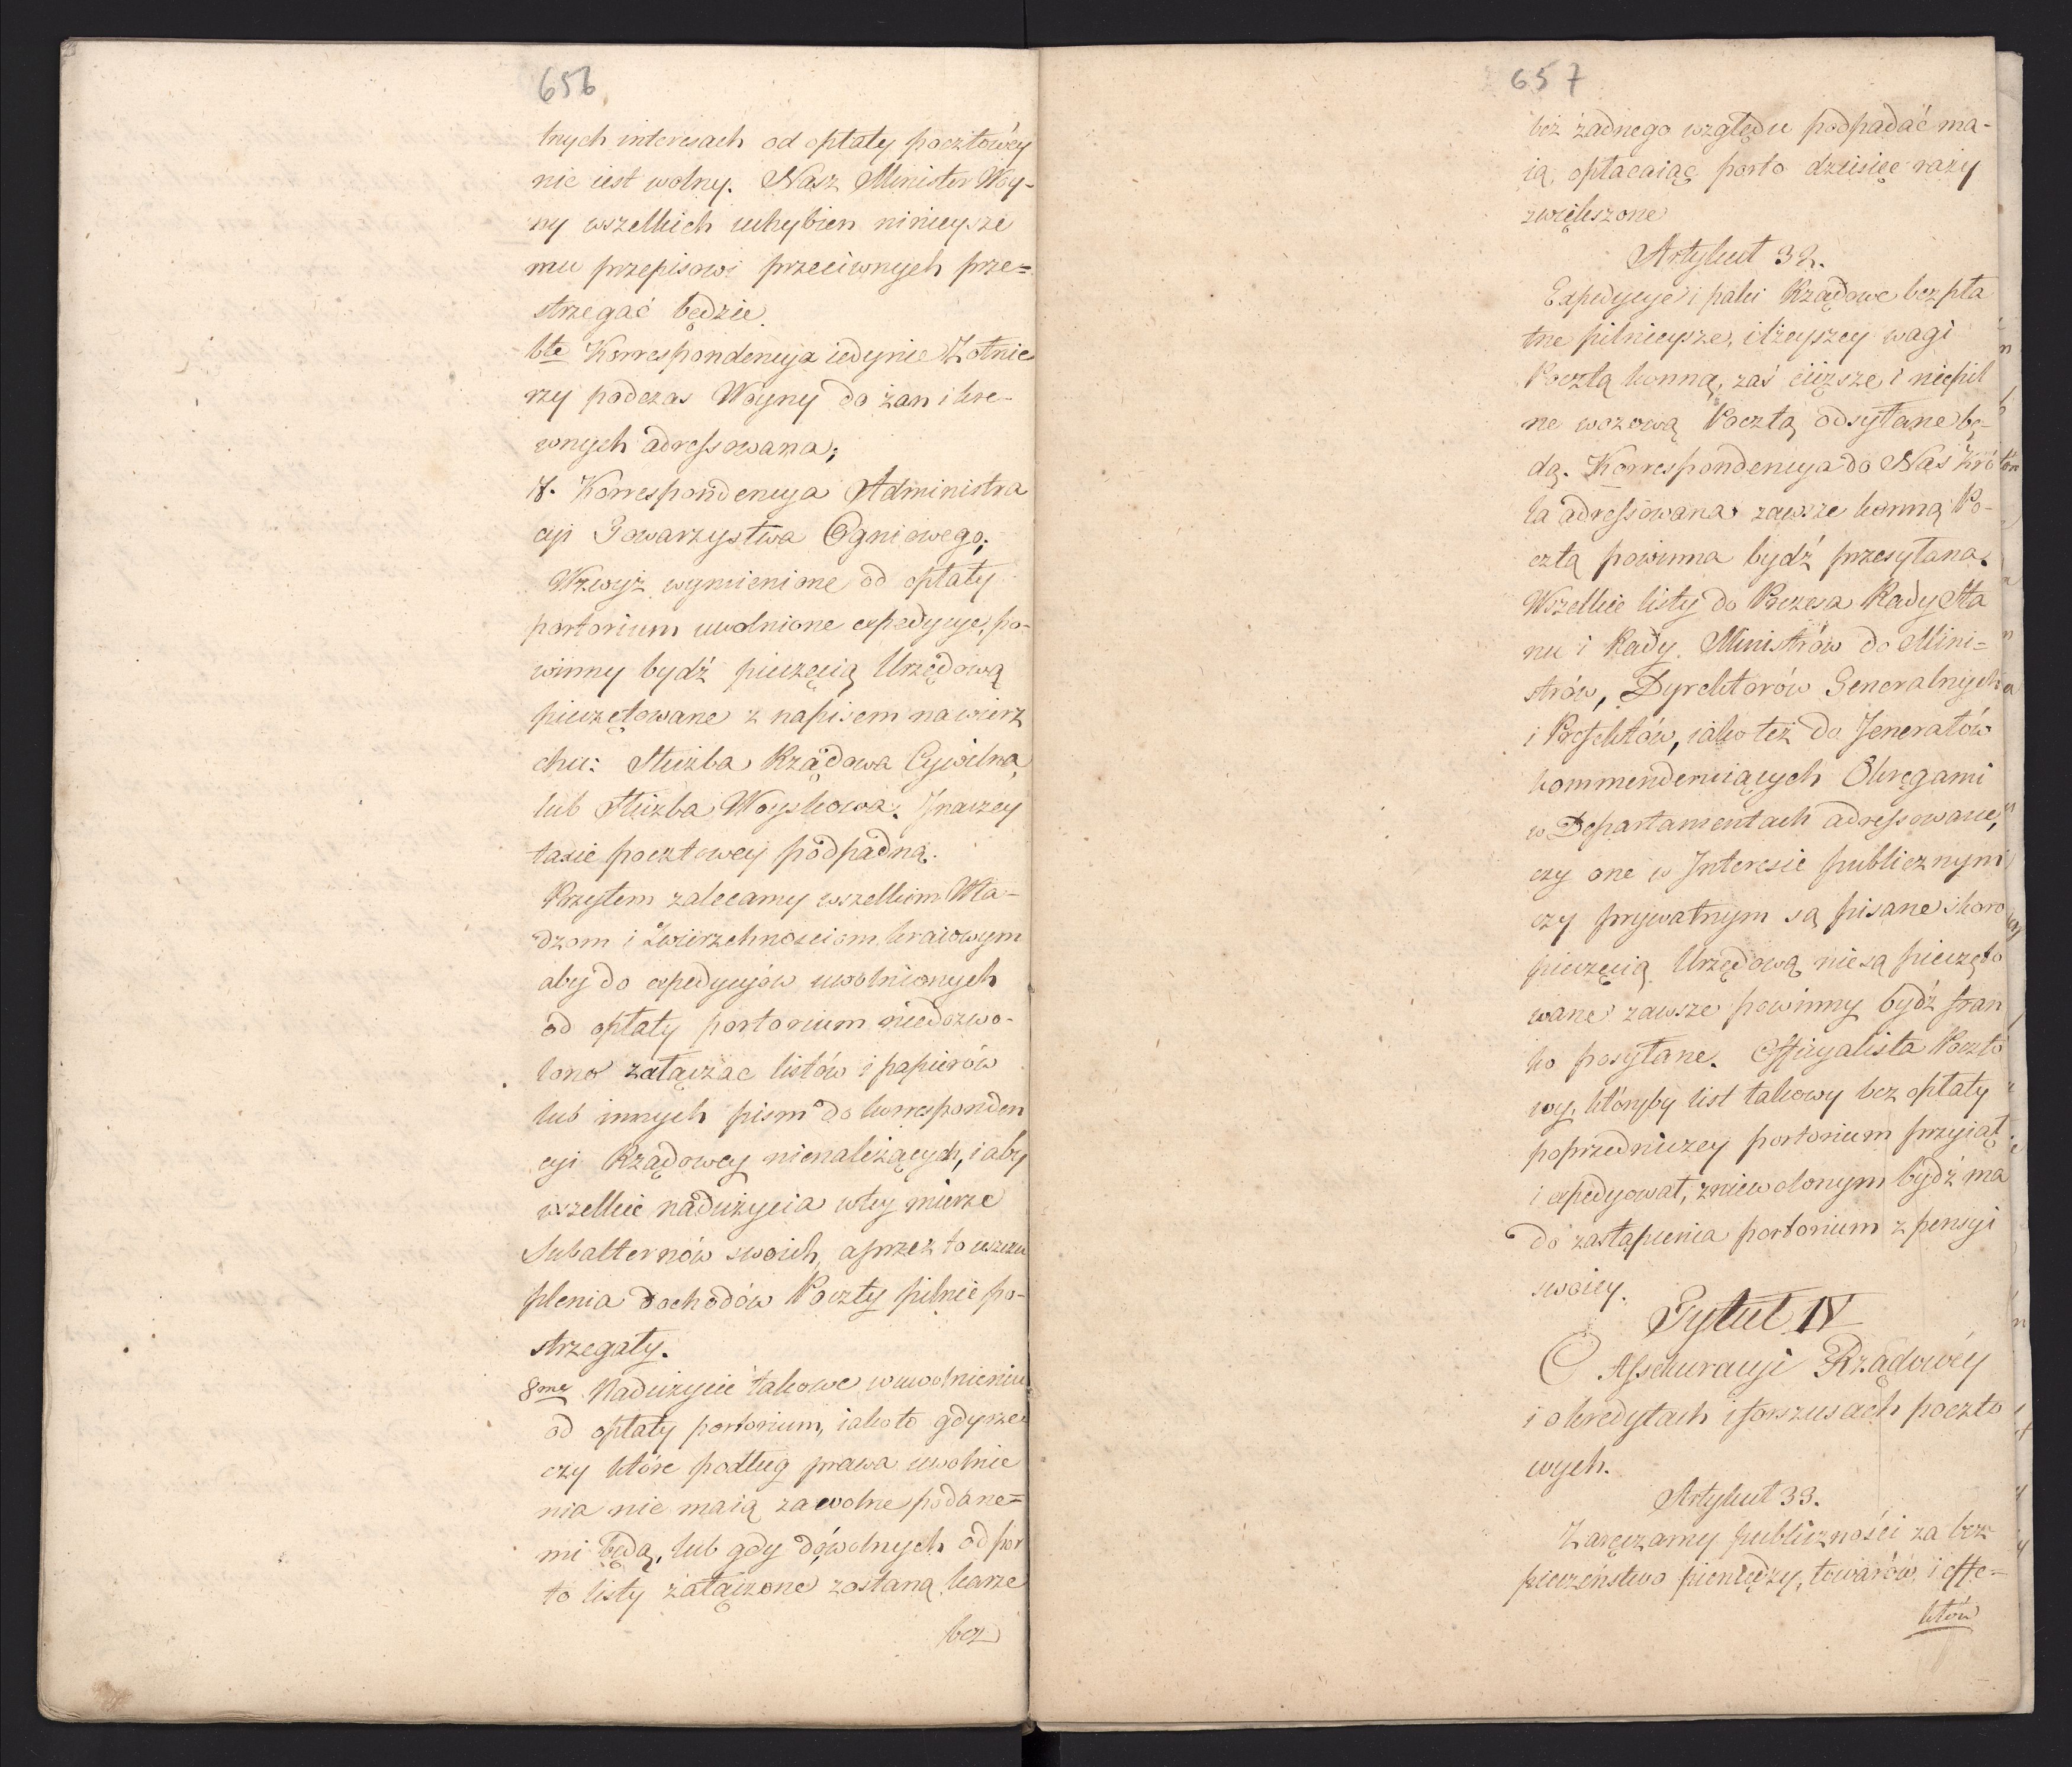 656
tnych interesach od opłaty pocztowéy
nie iest wolny. Nasz Minister Woy-
ny wszelkich uchybien ninieysze
mu przepisowi przeciwnych prze=
strzegać będzie
6te Korrespondencya iedynie Żołnie
rzy podczas Woyny do żan i kre-
wnych adressowana;
7. Korrespondencya Administra
cyi Towarzystwa Ogniowego;
Wzwyż wymienione od opłaty
portorium uwolnione expedycye, po-
winny bydź pieczęcią Urzędową
pieczętowane z napisem na wierz
chu: Służba Rządowa Cywilna
lub Służba Woyskowa. Jnaczey
taxie pocztowey podpadną.
Przytem zalecamy wszelkim Wła-
dzom i Zwierzchnościom kraiowym
aby do expedycyów uwolnionych
od opłaty portorium niedozwo-
lono załączac listów i papierów
lub innych pism do korresponden
cyi Rządowey nienależących, i aby
wszelkie nadużycia w tey mierze
Subalternów swoich, a przez to uszczu
plenia dochodów Poczty pilnie po-
strzegały.
8me Nadużycie takowe w uwolnieniu
od opłaty portorium, iako to gdy rze
czy które podług prawa uwolnie
nia nie maią za wolne podane=
mi będą, lub gdy do wolnych od por
to listy załączone zostaną karze
bez
657
bez żadnego względu podpadać ma-
ią, opłacaiąc porto dziesięć razy
zwiększone
Artykuł 32.
Expedycye i paki Rządowe bezpła
tne pilnieysze, i lżeyszey wagi
Pocztą konną, zaś cięższe i niepil
ne wozową Pocztą odsyłane bę-
dą. Korrespondencya do Nas Kró
la adressowana zawsze konną Po-
cztą powinna bydź przesyłana.
Wszelkie listy do Prezesa Rady Sta
nu i Rady Ministrów do Mini=
strów, Dyrektorów Generalnych
i Prefektów, iako też do Jenerałów
kommenderuiących Okręgami
w Departamentach adressowane,
czy one w Jnteresie publicznym
czy prywatnym są pisane skoro
pieczęcią Urzędową nie są pieczęto
wane zawsze powinny bydź fran
ko posyłane. Officyalista Poczto
wy, któryby list takowy bez opłaty
poprzedniczey portorium przyiął
i expedyował, zniewolonym bydź ma
do zastąpienia portorium z pensyi
swoiey.
Tytuł IV
O Assekuracyi Rządowéy
i o kredytach i forszusach poczto
wych.
Artykuł 33.
Zaręczamy publiczności za bez
pieczeństwo pieniędzy, towarów, i effe=
któw